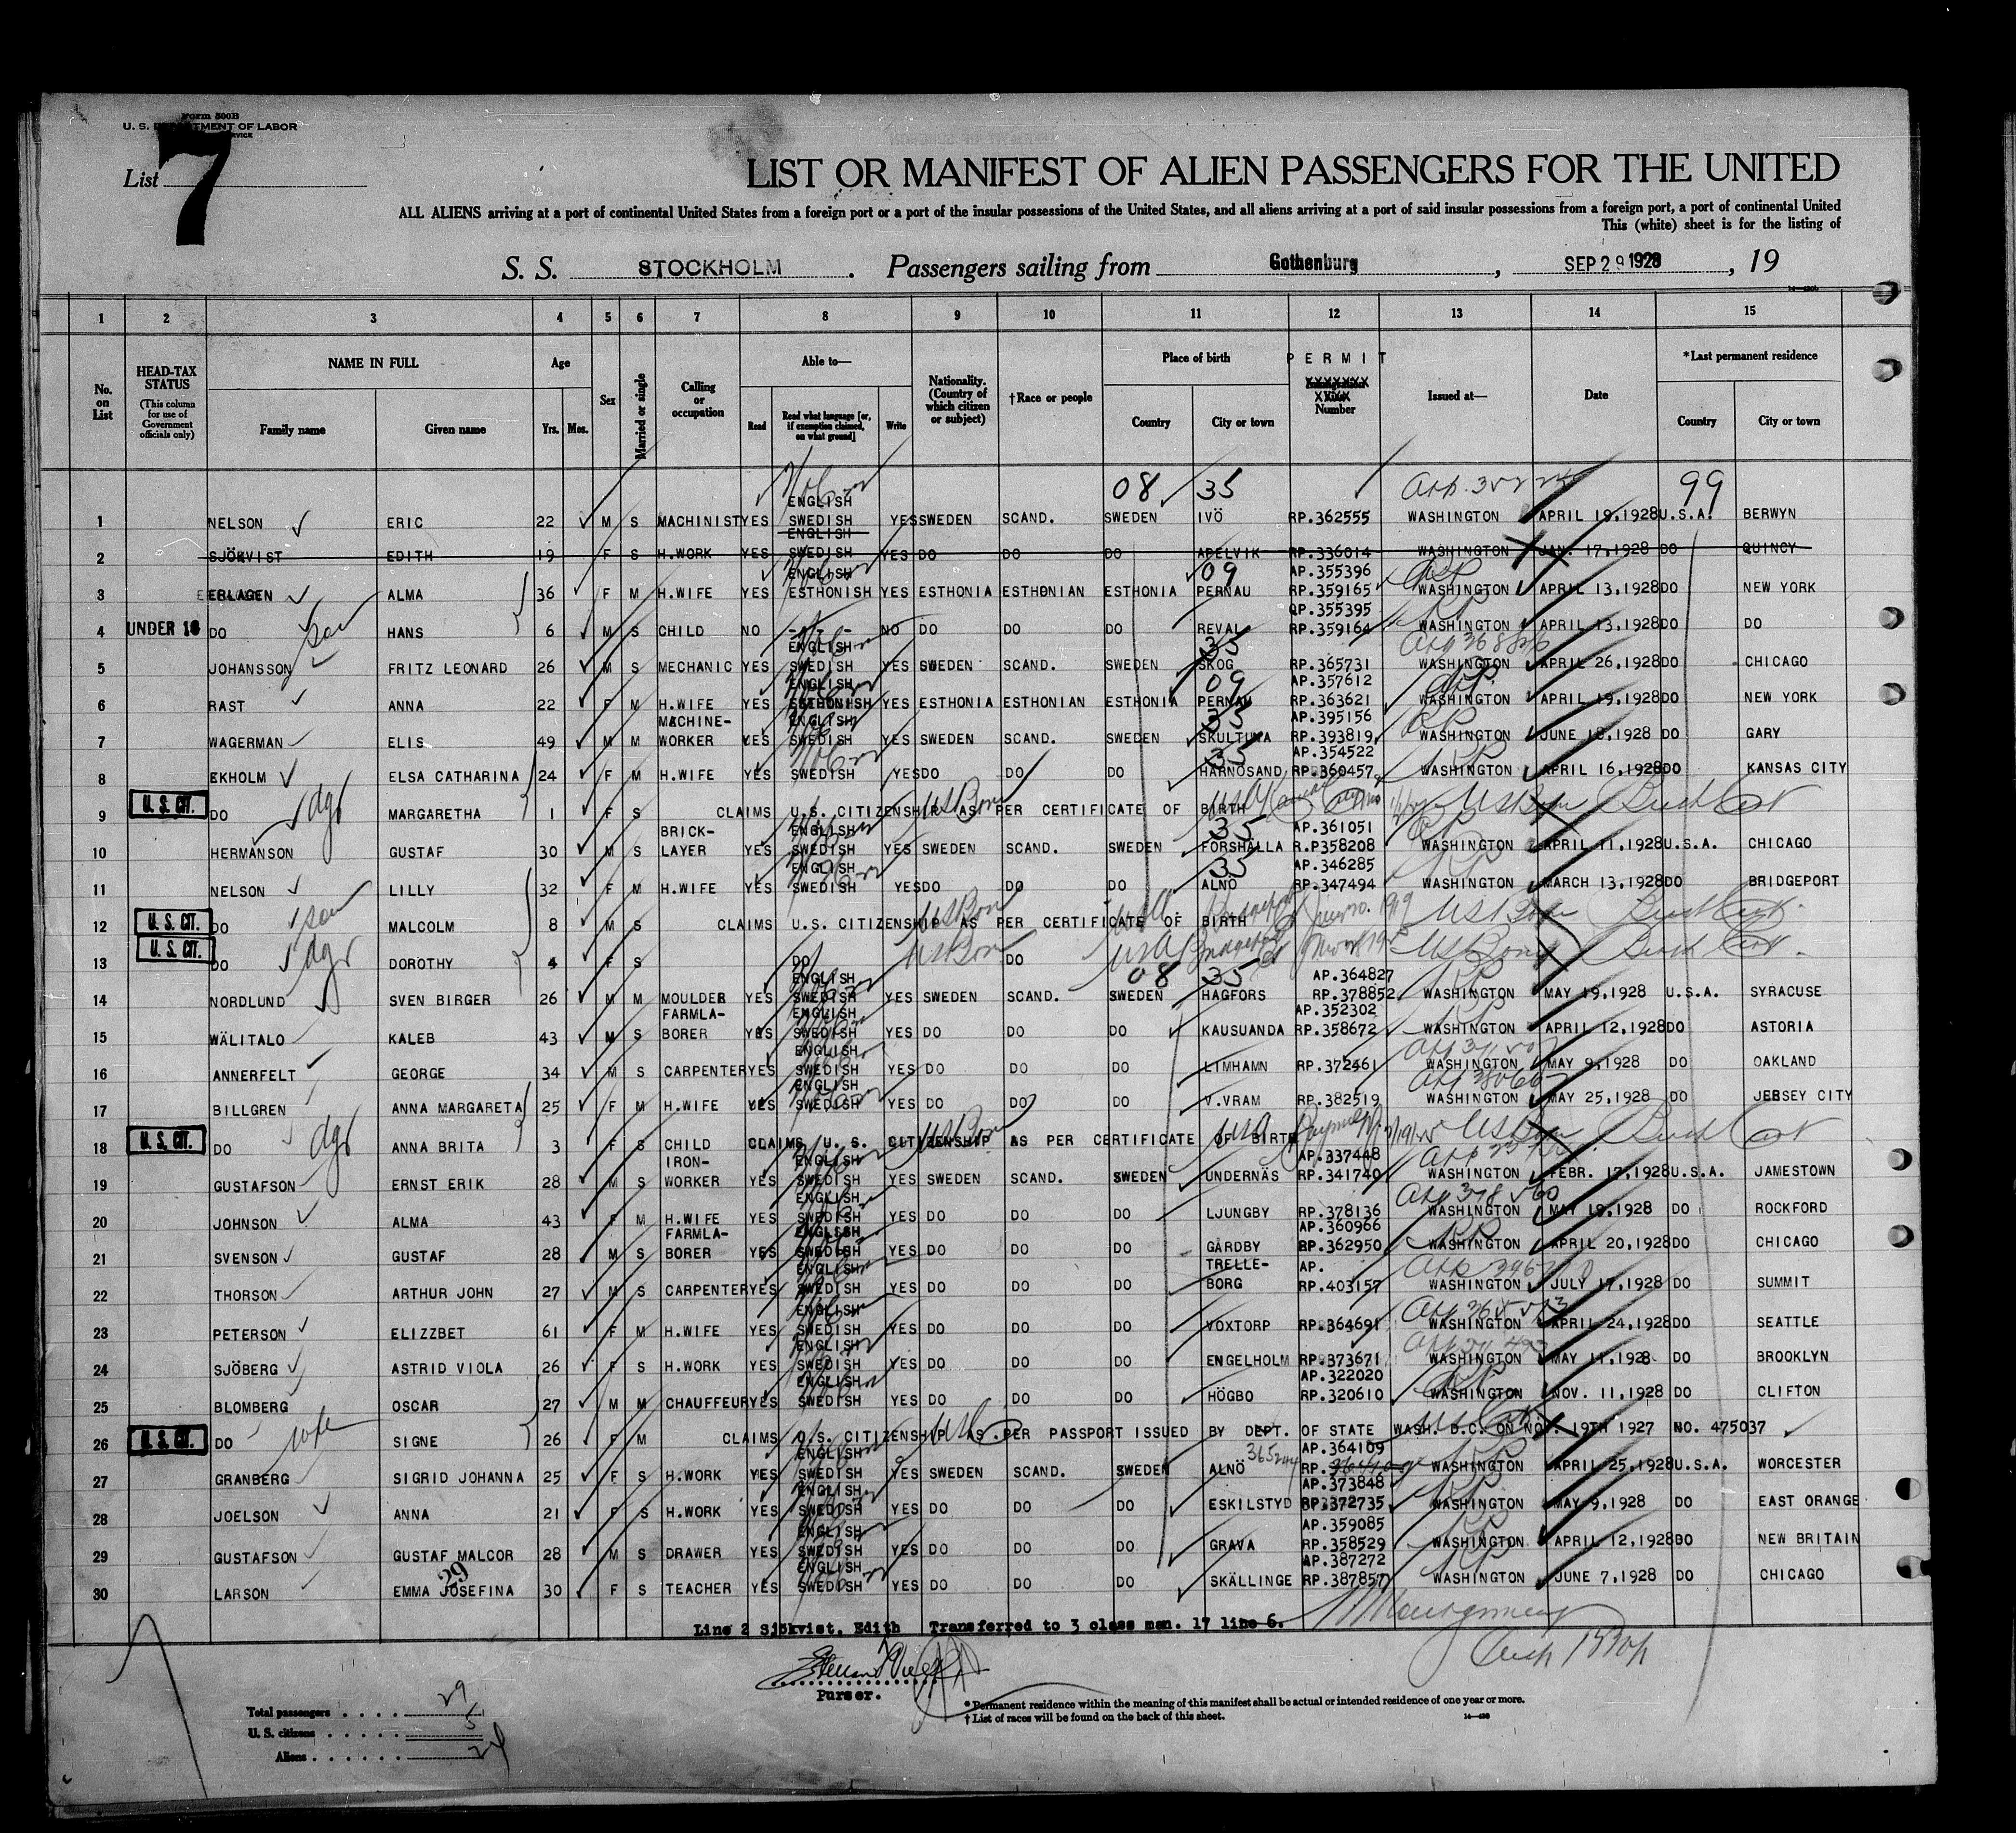 Form 500B
U. S. DEPARTMENT OF LABOR
List 7
LIST OR MANIFEST OF ALIEN PASSENGERS FOR THE UNITED
ALL ALIENS arriving at a port of continental United States from a foreign port or a port of the insular possessions of the United States, and all aliens arriving at a port of said insular possessions from a foreign port, a port of continental United
This (white) sheet is for the listing of
S. S. STOCKHOLM . Passengers sailing from Gothenburg , SEP 29 1928 , 19
1 2 3 4 5 6 7 8 9 10 11 12 13 14 15
No. on List
HEAD-TAX STATUS (This column for use of Government officials only)
NAME IN FULL Family name Given name
Age Yrs. Mos.
Sex
Married or single
Calling or occupation
Able to— Read Read what language [or, if exemption claimed, on what ground] Write
Nationality. (Country of which citizen or subject)
†Race or people
Place of birth Country City or town
PERMIT Number
Issued at—
Date
*Last permanent residence Country City or town
08 35 99
1 NELSON ERIC 22 M S MACHINIST YES ENGLISH SWEDISH YES SWEDEN SCAND. SWEDEN IVÖ RP.362555 WASHINGTON APRIL 19,1928 U.S.A. BERWYN
2 SJÖKVIST EDITH 19 F S H.WORK YES ENGLISH SWEDISH YES DO DO DO APELVIK RP.336014 WASHINGTON JAN. 17,1928 DO QUINCY
3 ERLAGEN ALMA 36 F M H.WIFE YES ENGLISH ESTHONISH YES ESTHONIA ESTHONIAN ESTHONIA 09 PERNAU AP.355396 RP.359165 WASHINGTON APRIL 13,1928 DO NEW YORK
4 UNDER 16 DO son HANS 6 M S CHILD NO -o-o- NO DO DO DO REVAL QP.355395 RP.359164 WASHINGTON APRIL 13,1928 DO DO
5 JOHANSSON FRITZ LEONARD 26 M S MECHANIC YES ENGLISH SWEDISH YES SWEDEN SCAND. SWEDEN 35 SKOG RP.365731 WASHINGTON APRIL 26,1928 DO CHICAGO
6 RAST ANNA 22 F M H.WIFE YES ENGLISH ESTHONISH YES ESTHONIA ESTHONIAN ESTHONIA 09 PERNAU AP.357612 RP.363621 WASHINGTON APRIL 19,1928 DO NEW YORK
7 WAGERMAN ELIS 49 M M MACHINE-WORKER YES ENGLISH SWEDISH YES SWEDEN SCAND. SWEDEN 35 SKULTUNA AP.395156 RP.393819 WASHINGTON JUNE 18,1928 DO GARY
8 EKHOLM ELSA CATHARINA 24 F M H.WIFE YES SWEDISH YES DO DO DO 35 HÄRNÖSAND AP.354522 RP.360457 WASHINGTON APRIL 16,1928 DO KANSAS CITY
9 U.S. CIT. DO dgt MARGARETHA 1 F S CLAIMS U.S. CITIZENSHIP AS PER CERTIFICATE OF BIRTH US Born USA US Born Birth Cert
10 HERMANSON GUSTAF 30 M S BRICK-LAYER YES ENGLISH SWEDISH YES SWEDEN SCAND. SWEDEN 35 FORSHÄLLA AP.361051 R.P358208 WASHINGTON APRIL 11,1928 U.S.A. CHICAGO
11 NELSON LILLY 32 F M H.WIFE YES ENGLISH SWEDISH YES DO DO DO 35 ALNÖ AP.346285 RP.347494 WASHINGTON MARCH 13,1928 DO BRIDGEPORT
12 U.S. CIT. DO son MALCOLM 8 M S CLAIMS U.S. CITIZENSHIP AS PER CERTIFICATE OF BIRTH US Born Bridgeport US Born Birth Cert.
13 U.S. CIT. DO dgt DOROTHY 4 F S DO DO US Born USA Bridgeport US Born Birth Cert.
14 NORDLUND SVEN BIRGER 26 M M MOULDER YES ENGLISH SWEDISH YES SWEDEN SCAND. 08 SWEDEN 35 HAGFORS AP.364827 RP.378852 WASHINGTON MAY 19,1928 U.S.A. SYRACUSE
15 WÄLITALO KALEB 43 M S FARMLA-BORER YES ENGLISH SWEDISH YES DO DO DO KAUSUANDA AP.352302 RP.358672 WASHINGTON APRIL 12,1928 DO ASTORIA
16 ANNERFELT GEORGE 34 M S CARPENTER YES ENGLISH SWEDISH YES DO DO DO LIMHAMN RP.372461 WASHINGTON MAY 9,1928 DO OAKLAND
17 BILLGREN ANNA MARGARETA 25 F M H.WIFE YES ENGLISH SWEDISH YES DO DO DO V.VRAM RP.382519 WASHINGTON MAY 25,1928 DO JERSEY CITY
18 U.S. CIT. DO dgt ANNA BRITA 3 F S CHILD CLAIMS U. S. CITIZENSHIP AS PER CERTIFICATE OF BIRTH US Born USA US Born Birth Cert
19 GUSTAFSON ERNST ERIK 28 M S IRON-WORKER YES ENGLISH SWEDISH YES SWEDEN SCAND. SWEDEN UNDERNÄS AP.337448 RP.341740 WASHINGTON FEBR. 17,1928 U.S.A. JAMESTOWN
20 JOHNSON ALMA 43 F M H.WIFE YES ENGLISH SWEDISH YES DO DO DO LJUNGBY RP.378136 WASHINGTON MAY 19,1928 DO ROCKFORD
21 SVENSON GUSTAF 28 M S FARMLA-BORER YES ENGLSSH SWEDISH YES DO DO DO GÅRDBY AP.360966 RP.362950 WASHINGTON APRIL 20,1928 DO CHICAGO
22 THORSON ARTHUR JOHN 27 M S CARPENTER YES ENGLISH SWEDISH YES DO DO DO TRELLE-BORG AP. RP.403157 WASHINGTON JULY 17,1928 DO SUMMIT
23 PETERSON ELIZZBET 61 F M H.WIFE YES ENGLISH SWEDISH YES DO DO DO VOXTORP RP.364691 WASHINGTON APRIL 24,1928 DO SEATTLE
24 SJÖBERG ASTRID VIOLA 26 F S H.WORK YES ENGLISH SWEDISH YES DO DO DO ENGELHOLM RP.373671 WASHINGTON MAY 11,1928 DO BROOKLYN
25 BLOMBERG OSCAR 27 M M CHAUFFEUR YES ENGLISH SWEDISH YES DO DO DO HÖGBO AP.322020 RP.320610 WASHINGTON NOV. 11,1928 DO CLIFTON
26 U.S. CIT. DO wife SIGNE 26 F M CLAIMS U.S. CITIZENSHIP AS PER PASSPORT ISSUED BY DEPT. OF STATE WASH. D.C. ON NOV. 19TH 1927 NO. 475037
27 GRANBERG SIGRID JOHANNA 25 F S H.WORK YES ENGLISH SWEDISH YES SWEDEN SCAND. SWEDEN ALNÖ 365244 AP.364109 RP. WASHINGTON APRIL 25,1928 U.S.A. WORCESTER
28 JOELSON ANNA 21 F S H.WORK YES ENGLISH SWEDISH YES DO DO DO ESKILSTYD AP.373848 RP.372735 WASHINGTON MAY 9,1928 DO EAST ORANGE
29 GUSTAFSON GUSTAF MALCOR 28 M S DRAWER YES ENGLISH SWEDISH YES DO DO DO GRAVA AP.359085 RP.358529 WASHINGTON APRIL 12,1928 DO NEW BRITAIN
30 LARSON EMMA JOSEFINA 30 F S TEACHER YES ENGLISH SWEDISH YES DO DO DO SKÄLLINGE AP.387272 RP.387857 WASHINGTON JUNE 7,1928 DO CHICAGO
29
Line 2 Sjökvist, Edith Transferred to 3 class man. 17 line 6.
Purser.
Total passengers . . . . 29
U. S. citizens . . . . . 5
Aliens . . . . . . 24
* Permanent residence within the meaning of this manifest shall be actual or intended residence of one year or more.
† List of races will be found on the back of this sheet.